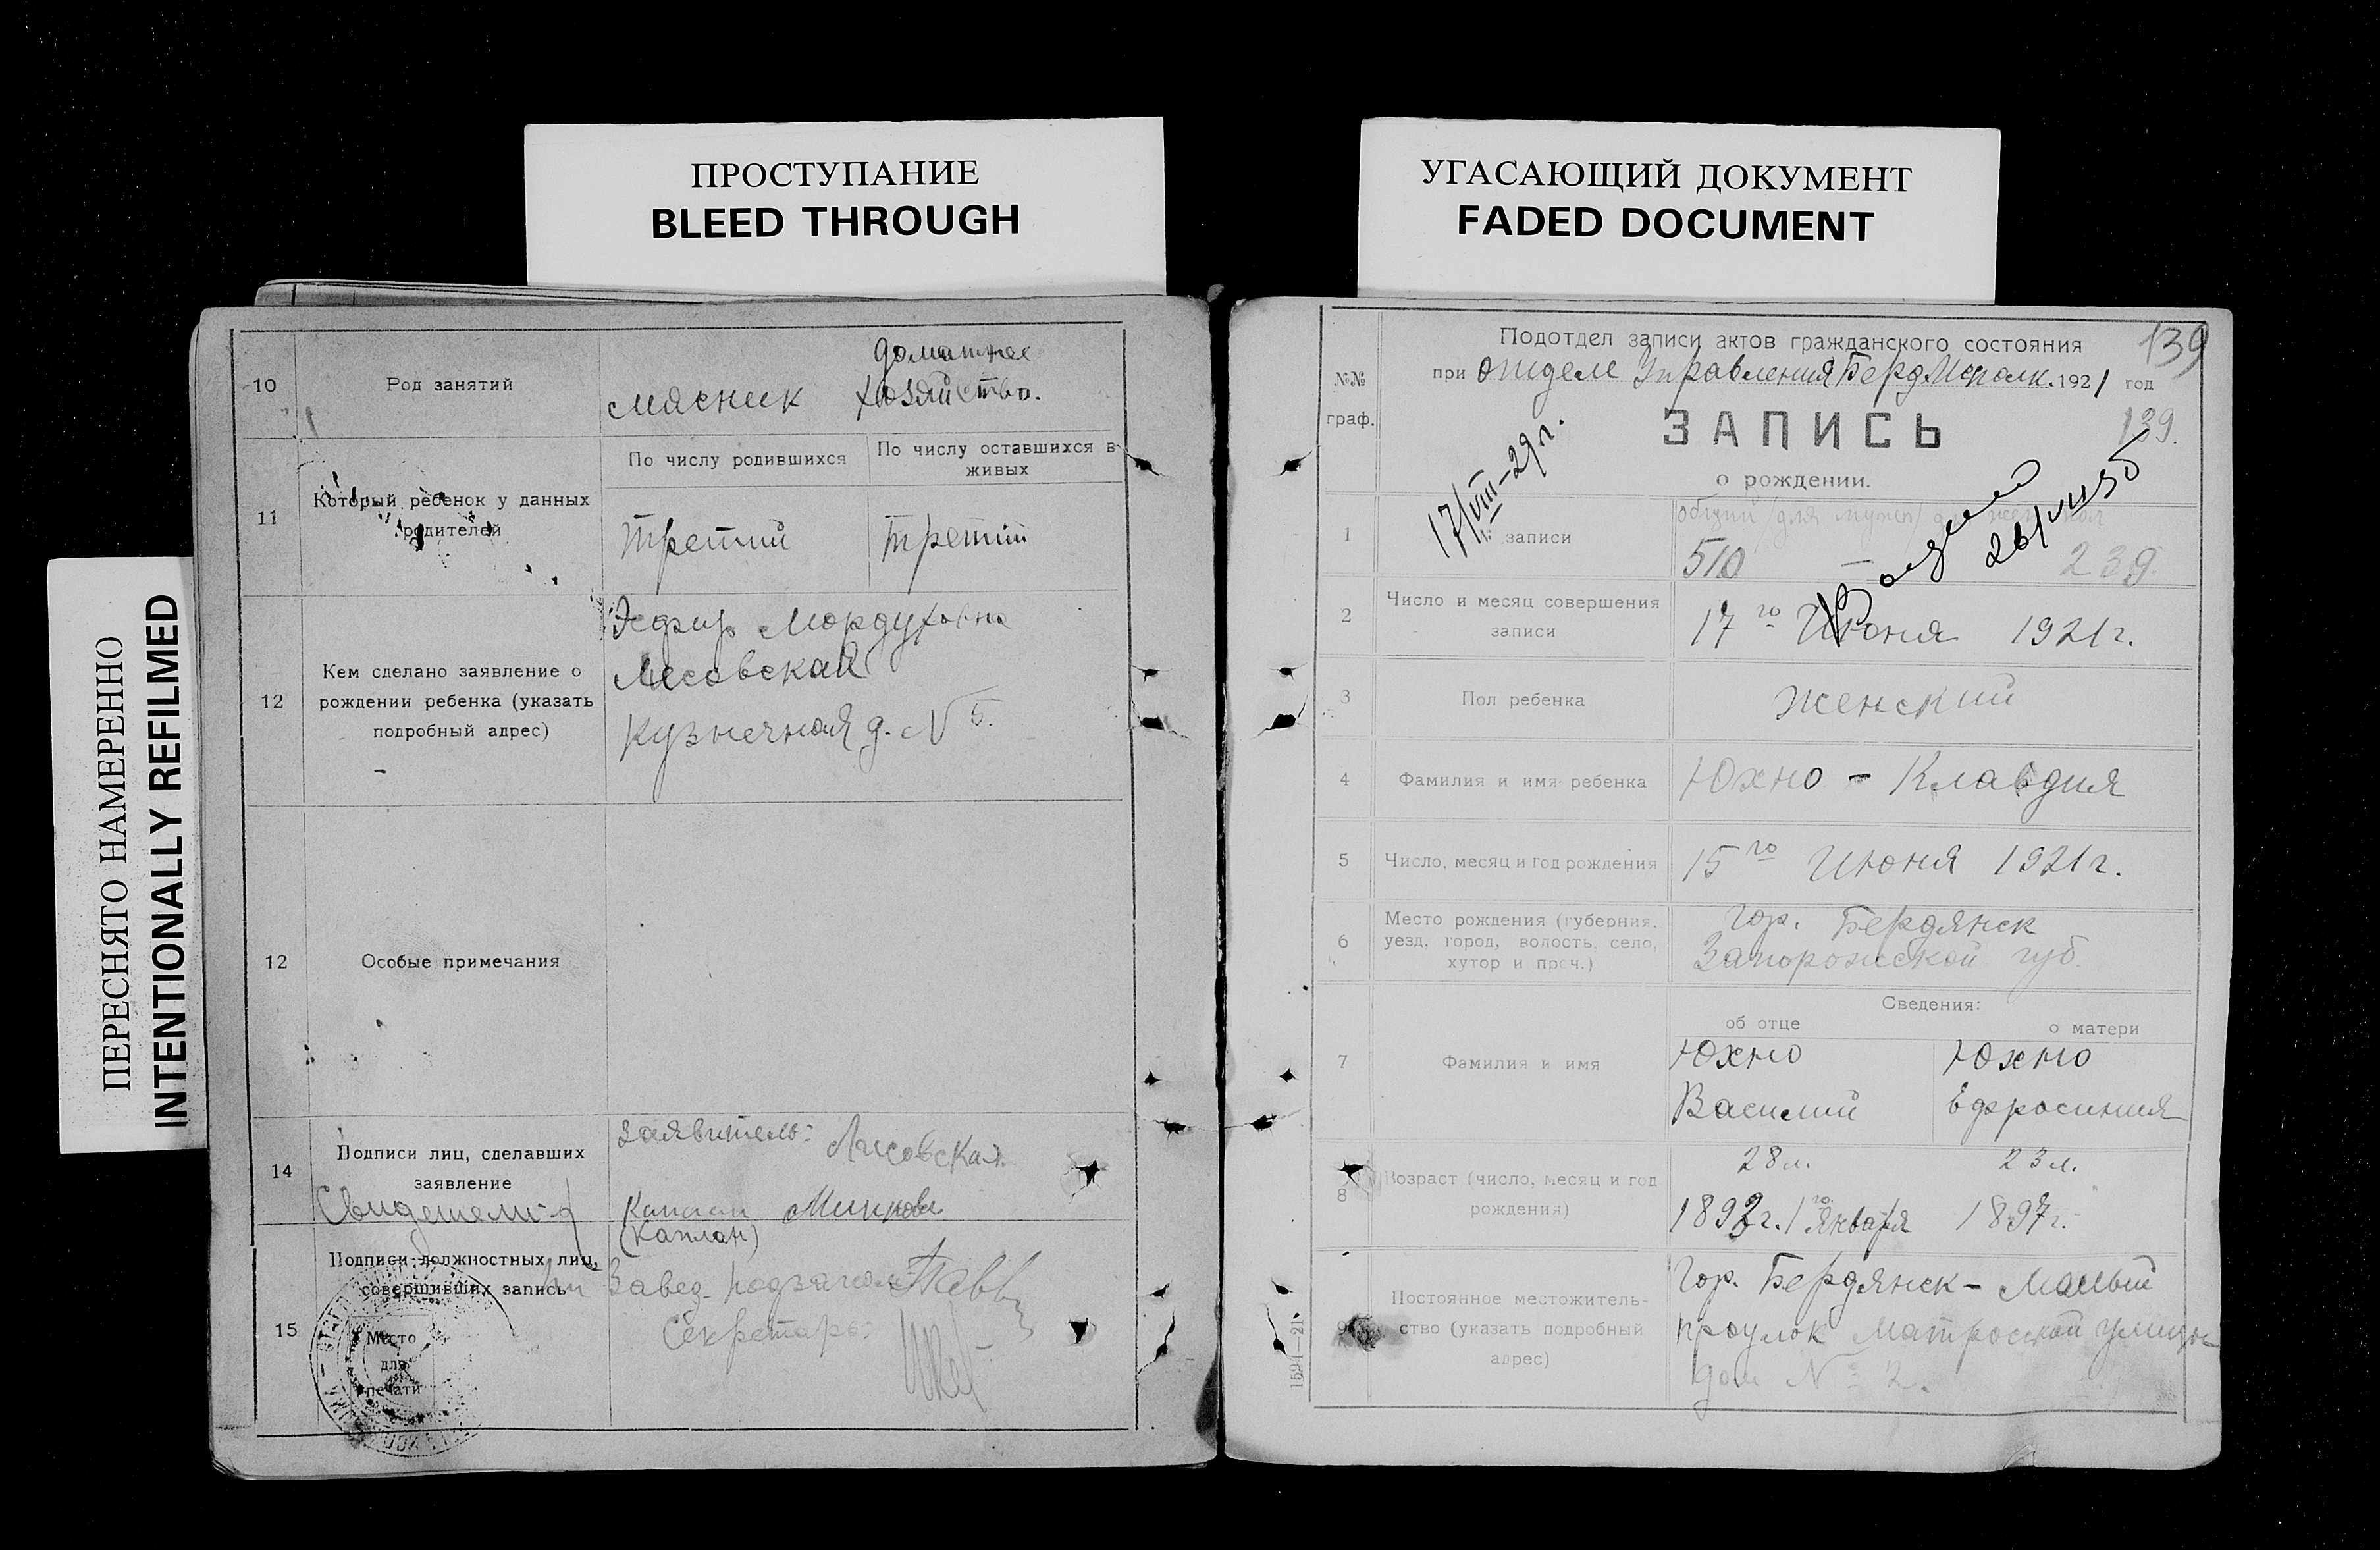 ПРОСТУПАНИЕ
BLEED THROUGH
УГАСАЮЩИЙ ДОКУМЕНТ
FADED DOCUMENT
ПЕРЕСНЯТО НАМЕРЕННО
INTENTIONALLY REFILMED
10
Род занятий
мясник
домашнее
хозяйство.
11
Который ребенок у данных
родителей
По числу родившихся
По числу оставшихся в
живых
Третий
третий
12
Кем сделано заявление о
рождении ребенка (указать
подробный адрес)
Эсфир Мордуховна
Лисовская
Кузнечная д. № 5.
12
Особые примечания
14
Подписи лиц, сделавших
заявление
Свидетели
заявитель: Лисовская
Каплан
(Каплан)
15
Подписи должностных лиц,
совершивших запись
Место
для
печати
Завед.
Секретарь:
№№
граф.
Подотдел записи актов гражданского состояния
139
при отделе Управления Берд.Исполк. 1921 год
ЗАПИСЬ
139.
о рождении.
17/VIII-29г.
26/VIII 50
1
№ записи
общий /для мужч/ для жен. пол
510 — 239.
2
Число и месяц совершения
записи
17го Июня 1921г.
3
Пол ребенка
Женский
4
Фамилия и имя ребенка
Юхно - Клавдия
5
Число, месяц и год рождения
15го Июня 1921г.
6
Место рождения (губерния,
уезд, город, волость, село,
хутор и проч.)
Гор. Бердянск
Запорожской губ.
Сведения:
об отце
о матери
7
Фамилия и имя
Юхно
Василий
Юхно
Ефросиния
8
Возраст (число, месяц и год
рождения)
28 л.
23 л.
1892г. 1го Января
1897г.
9
Постоянное местожитель-
ство (указать подробный
адрес)
Гор. Бердянск - Малый
проулок Матросской улицы
дом № 2.